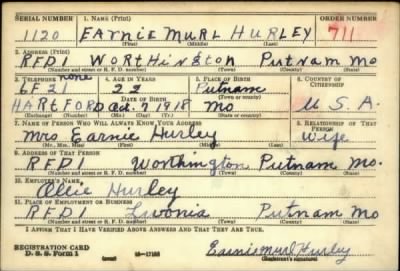 SERIAL NUMBER 1. NAME (Print) ORDER NUMBER
1120 EARNIE MURL HURLEY 711
(First) (Middle) (Last)
2. ADDRESS (Print)
RFD1 WORTHINGTON PUTNAM MO
(Number and street or R. F. D. number) (Town) (County) (State)
3. TELEPHONE 4. AGE IN YEARS 5. PLACE OF BIRTH 6. COUNTRY OF CITIZENSHIP
none
6F21 22 Putnam
(Town or county)
DATE OF BIRTH
HARTFORD 7 1918 Mo U. S. A.
7. NAME OF PERSON WHO WILL ALWAYS KNOW YOUR ADDRESS 8. RELATIONSHIP OF THAT PERSON
Mrs Earnie Hurley Wife
(Mr., Mrs., Miss) (First) (Middle) (Last)
9. ADDRESS OF THAT PERSON
RFD1 Worthington Putnam Mo.
(Number and street or R. F. D. number) (Town) (County) (State)
10. EMPLOYER'S NAME
Ollie Hurley
11. PLACE OF EMPLOYMENT OR BUSINESS
RFD1 Livonia Putnam Mo
(Number and street or R. F. D. number) (Town) (County) (State)
I AFFIRM THAT I HAVE VERIFIED ABOVE ANSWERS AND THAT THEY ARE TRUE.
REGISTRATION CARD
D. S. S. Form 1 Earnie Murl Hurley
(Registrant's signature)